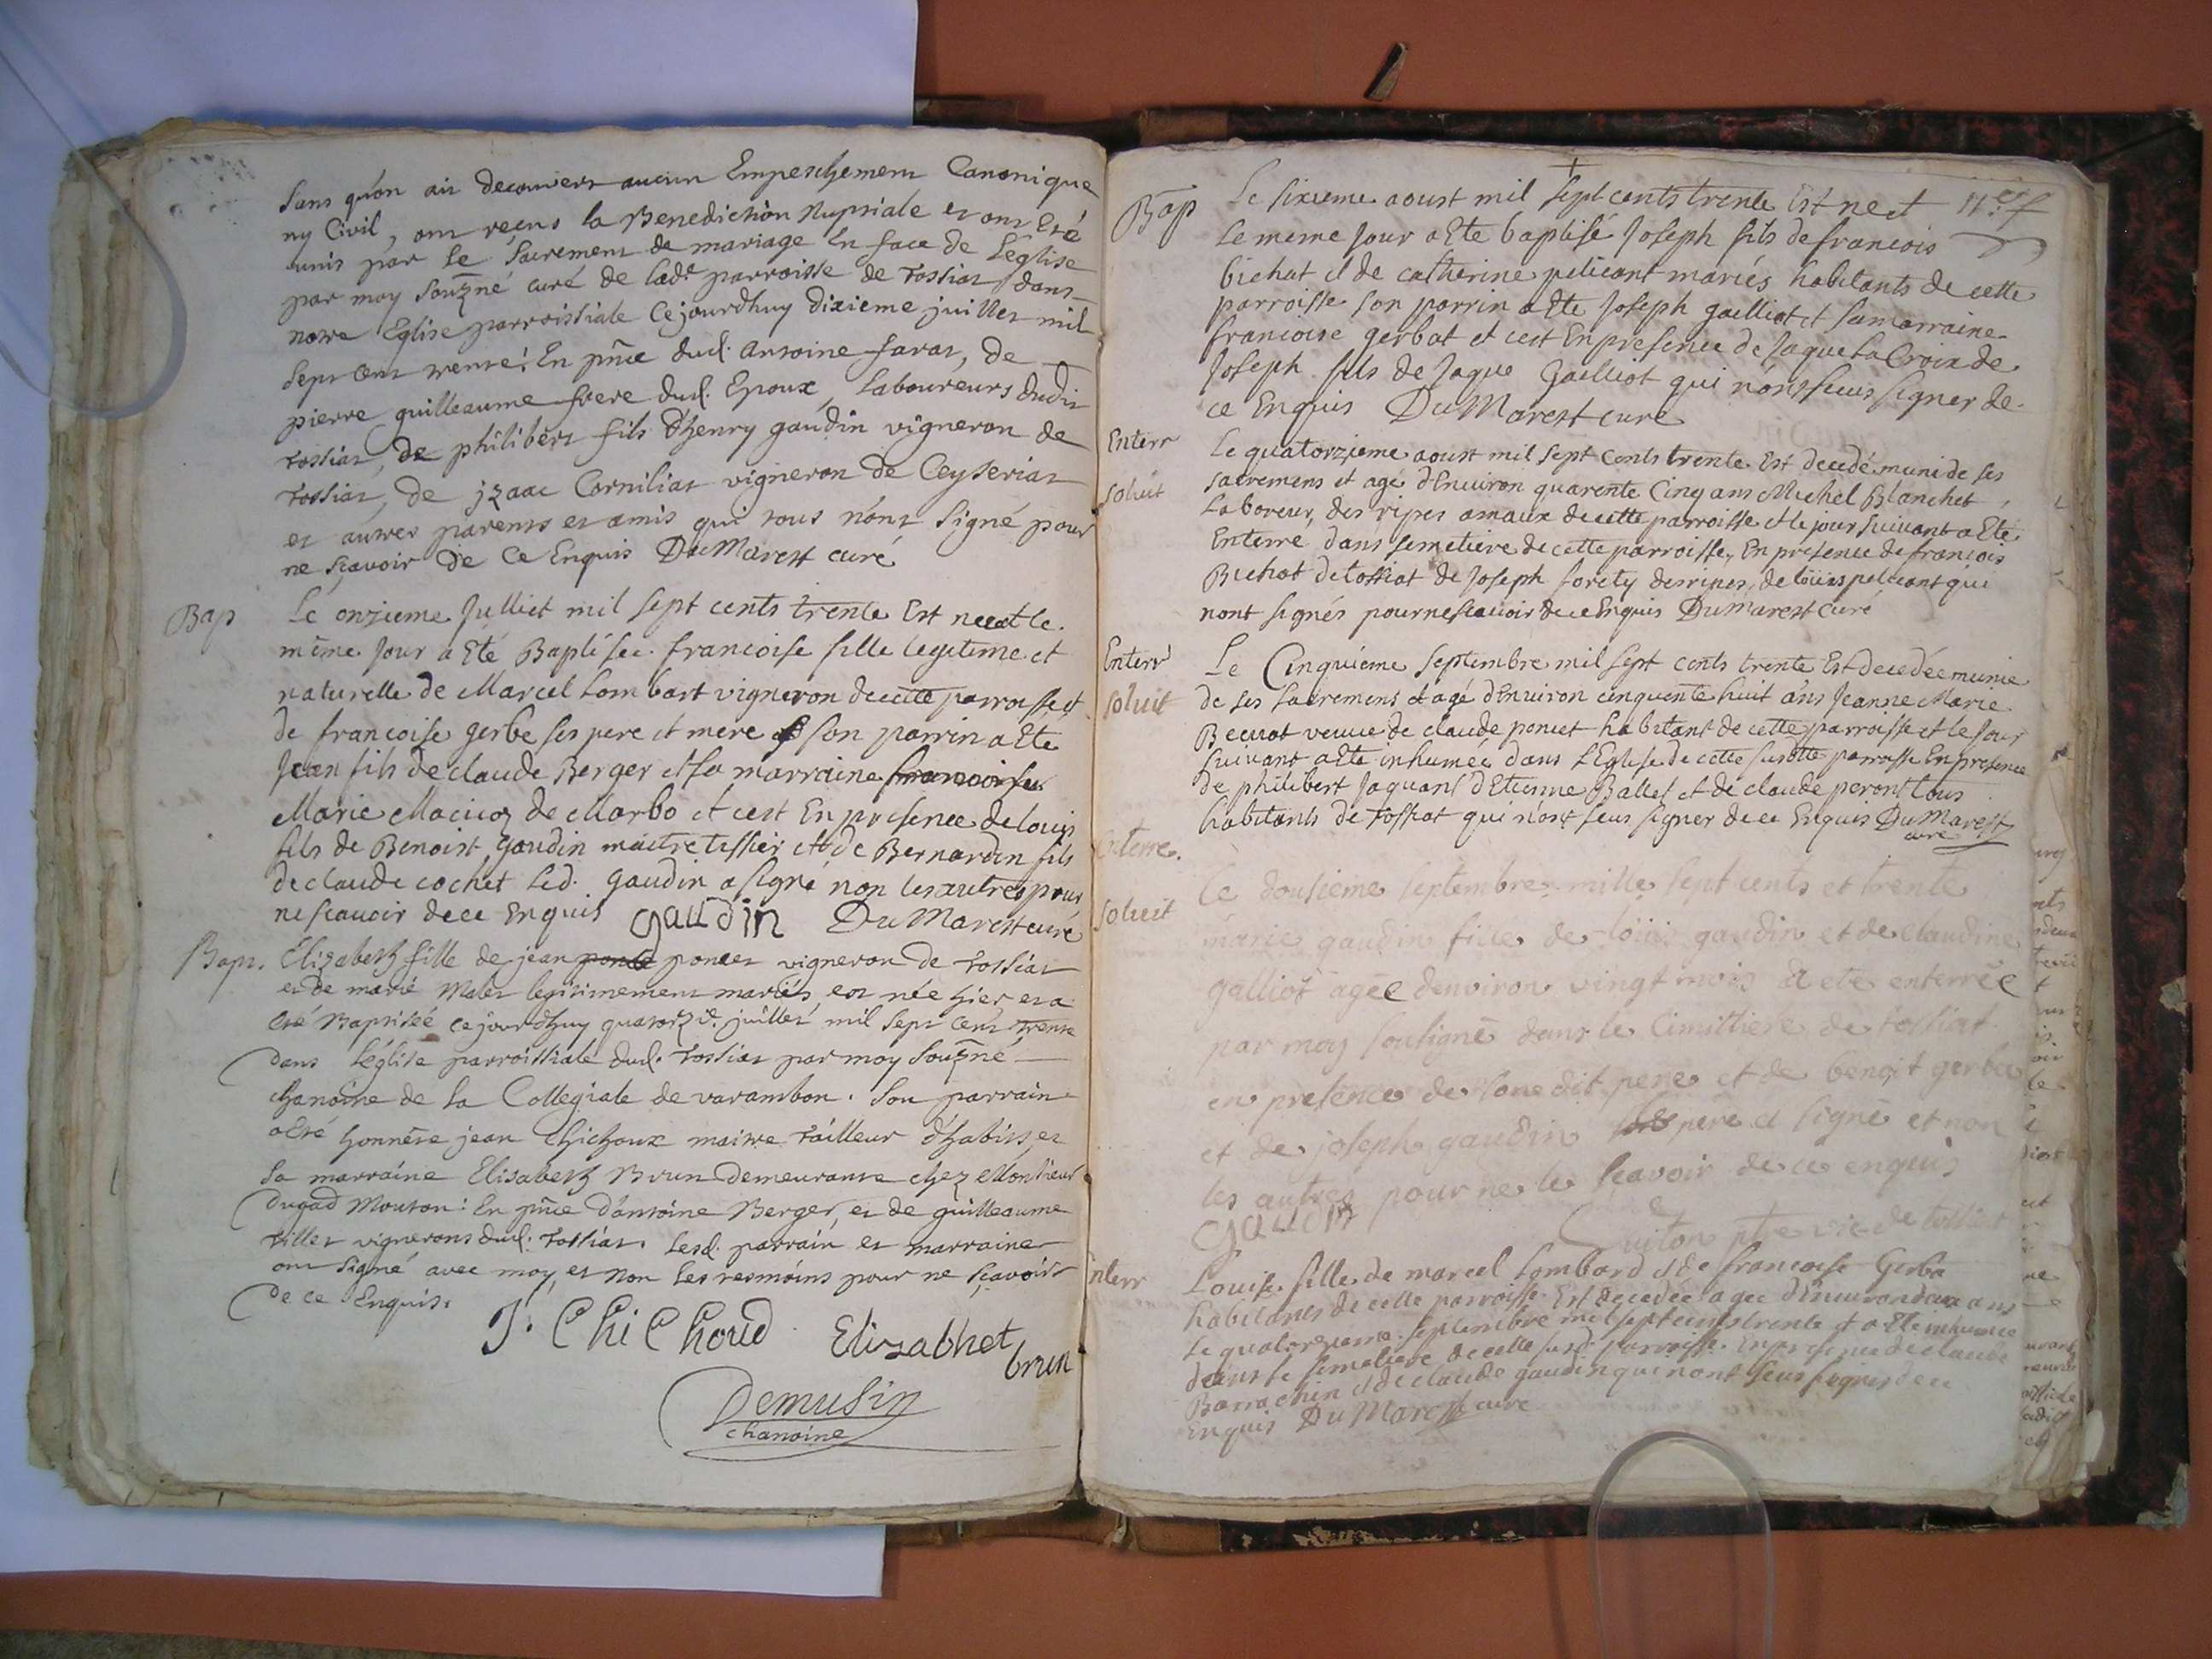 Sans qu'on ait decouvert aucun Empeschement Canonique
ny Civil, ont reçus la Benediction Nuptiale et ont Eté
unis par le Sacrement de mariage En face de L'église
par moy souzné curé de lade parroisse de Tossiat dans
notre Eglise parroissiale Cejourdhuy dixieme juillet mil
sept cent trente: En pnce dud. antoine favat, de
pierre guilleaume frere dud. Epoux, Laboureurs dudit
Tossiat, de philibert fils d'henry gaudin vigneron de
Tossiat, de jzaac Corniliat vigneron de Ceyseriat
et autres parents et amis qui tous n'ont signé pour
ne sçavoir de ce Enquis DuMarest curé
Bap
Le onzieme Julliet mil sept cents trente Est nee et le
même Jour a Eté Baptisée francoise fille legitime et
naturelle de Marcel Lombart vigneron de cette parroisse et
de francoise gerbe ses pere et mere son parrin a Ete
Jean fils de claude Berger et sa marraine francoise
Marie Macicoz de Marbo et cest En presence de louis
fils de Benoist gaudin maitre tissier et de Bernardin fils
de claude cochet led. gaudin a signe non les autres pour
ne scavoir de ce Enquis gaudin DuMarest curé
Bapt.
Elizabeth fille de jean ponce poncet vigneron de Tossiat
et de marie Malet legitimement mariés, est née hier et a
eté Baptisée cejourdhuy quatorze juillet mil sept cent trente
dans l'église parroissiale dud. Tossiat par moy souzné
chanoine de la Collegiale de varambon. Son parrain
a eté honnête jean Chichoux maitre tailleur d'habits, et
sa marraine Elisabeth Brun demeurante chez Monsieur
Dugad Mouton: En pnce d'antoine Berger, et de guilleaume
villet vignerons dud. Tossiat. Lesd. parrain et marraine
ont signé avec moy, et non les tesmoins pour ne sçavoir
de ce Enquis.
J. ChiChoud Elizabhet
brun
Demusin
chanoine
Bap
Le sixieme aoust mil sept cents trente Est ne et
le meme Jour a Ete baptisé Joseph fils de francois
bichat et de catherine pelicant mariés habitants de cette
parroisse son parrin a Ete Joseph galliot et sa marraine
francoise gerbat et cest En presence de Jaque La Croix de
Joseph fils de Jaque Galliot qui n'ont sceus signer de
ce Enquis DuMarest cure
Enterr
soluit
Le quatorzieme aoust mil sept cents trente Est decedé muni de ses
sacremens et agé d'Environ quarente Cinq ans Michel Blanchet
Laboreur, des ripes amaux de cette parroisse et le jour suivant a Ete
Enterré dans semetiere de cette parroisse, En presence de francois
Bichat de tossiat de Joseph forety des ripes, de loüis pelicant qui
nont signés pour ne scavoir de ce Enquis DuMarest curé
Enterr
soluit
Le Cinquieme septembre mil sept cents trente Est decedée munie
de ses sacremens et agé d'Environ cinquente huit ans Jeanne Marie
Becuot veuve de claude poncet habitant de cette parroisse et le jour
suivant a Ete inhumée dans L'Eglise de cette susditte parroisse En presence
de philibert Jaquans d'Etienne Ballet et de claude peront tous
habitants de Tossiat qui n'ont seus signer de ce Enquis DuMarest
cure
Enterre.
soluit
Ce dousieme septembre mille sept cents et trente
marie gaudin fille de loüis gaudin et de claudine
galliot agée d'environ vingt mois a ete enterrée
par moy souligné dans le Cimittiere de tossiat
en presence de son dit pere et de benoit gerba
et de joseph gaudin le pere a signé et non
les autres pour ne le scavoir de ce enquis
gaudin
Guiton ptre vic de tossiat
Enterr
Louise fille de marcel Lombard et de francoise Gerba
habitants de cette parroisse Est decedée agee d'Environ deux ans
le quatorzieme septembre mil sept cents trente et a Ete inhumée
dans le semetiere de cette susd. parroisse En presence de claude
Barrachin et de claude gaudin qui nont seus signer de ce
Enquis DuMarest cure